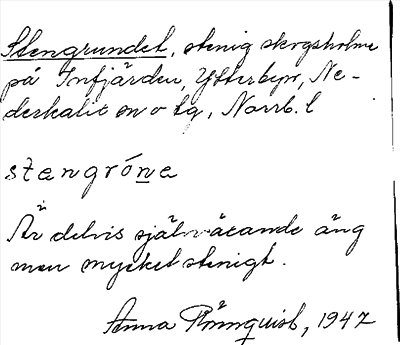 Stengrundet, stenig skogsholme
på Infjärden, Ytterbyn, Ne-
derkalix sn o tg, Norrb. l
stengrone
Är delvis självväxande äng
men mycket stenigt.
Anna Rönnquist, 1947